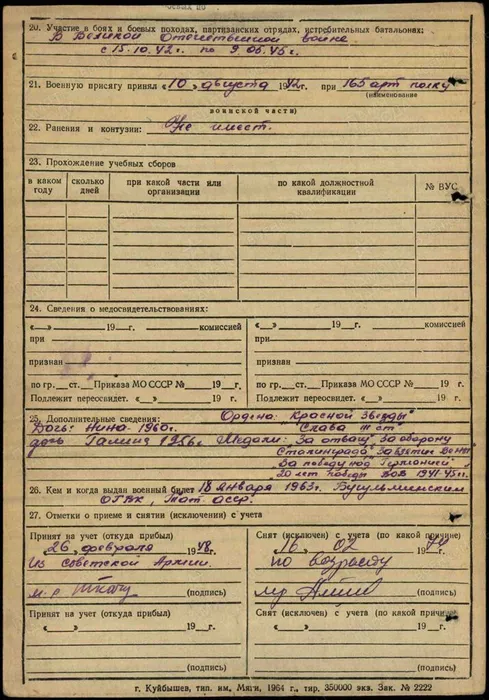 20. Участие в боях и боевых походах, партизанских отрядах, истребительных батальонах:
В Великой Отечественной войне
с 15.10.42 г. по 9.05.45 г.
21. Военную присягу принял «10» августа 1942 г. при 165 арт полку
(наименование
воинской части)
22. Ранения и контузии: Не имеет.
23. Прохождение учебных сборов
в каком году сколько дней при какой части или организации по какой должностной квалификации № ВУС
24. Сведения о медосвидетельствованиях:
« » 19 г. комиссией « » 19 г. комиссией
при при
признан признан
по гр. ст. Приказа МО СССР № 19 г. по гр. ст. Приказа МО СССР № 19 г.
Подлежит пересвидет. 19 г. Подлежит пересвидет. 19 г.
25. Дополнительные сведения: Ордена: "Красной Звезды"
Дочь: Нина-1960г. "Слава III ст"
дочь Галина 1956г. Медали: За отвагу, За оборону
Сталинграда, За взятие
За победу над Германией,
20 лет победы ВОВ 1941-45 гг.
26. Кем и когда выдан военный билет 18 января 1963г. Бугульминским
ОГВК, Тат. АССР.
27. Отметки о приеме и снятии (исключении) с учета
Принят на учет (откуда прибыл) Снят (исключен) с учета (по какой причине)
«26» февраля 1948 г. «16» 02 19 г.
из Советской Армии. по возрасту
(подпись) (подпись)
Принят на учет (откуда прибыл) Снят (исключен) с учета (по какой причине)
« » 19 г. « » 19 г.
(подпись) (подпись)
г. Куйбышев, тип. им. Мяги, 1964 г., тир. 350000 экз. Зак. № 2222